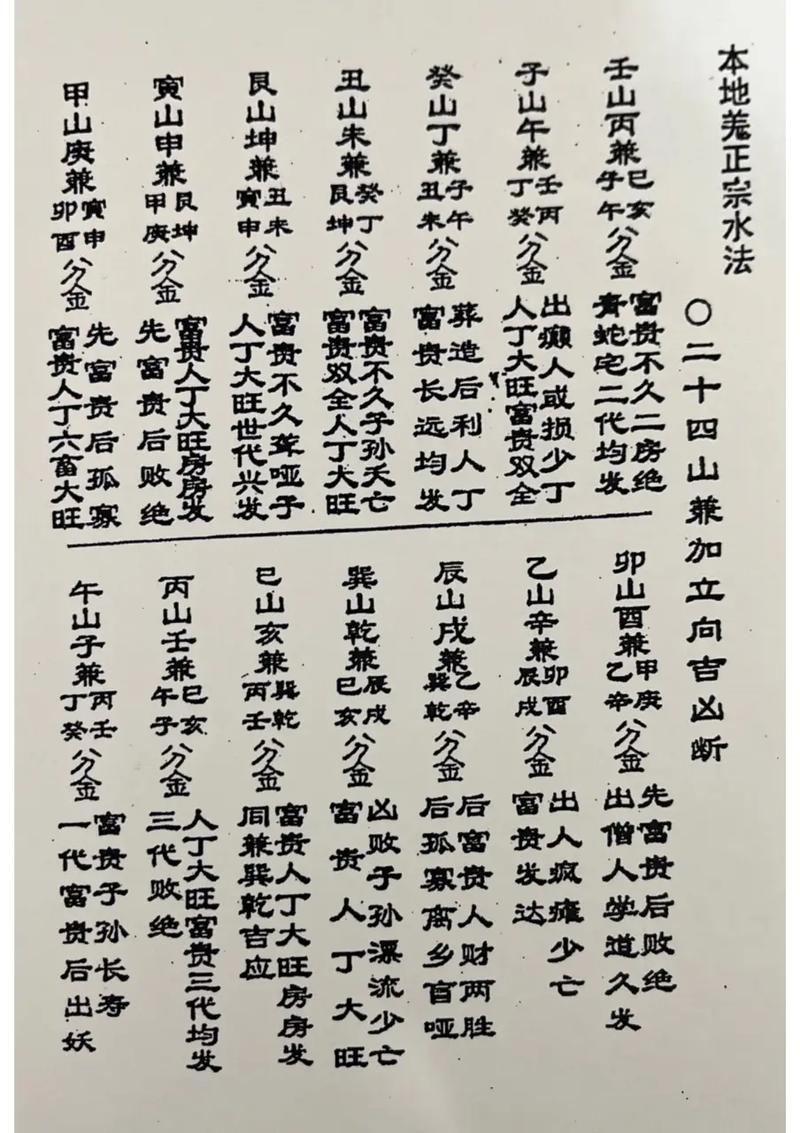 本地羗正宗水法
○二十四山兼加立向吉凶断
壬山丙兼巳亥子午分金
富贵不久二房绝
青蛇宅二代均发
子山午兼壬丙丁癸分金
出癞人或损少丁
人丁大旺富贵双全
癸山丁兼子午丑未分金
葬造后利人丁
富贵长远均发
丑山未兼癸丁艮坤分金
富贵不久子孙夭亡
富贵双全人丁大旺
艮山坤兼丑未寅申分金
富贵不久聋哑子
人丁大旺世代兴发
寅山申兼艮坤甲庚分金
富贵人丁大旺房房发
先富贵后败绝
甲山庚兼寅申卯酉分金
先富贵后孤寡
富贵人丁六畜大旺
卯山酉兼甲庚乙辛分金
先富贵后败绝
出僧人学道久发
乙山辛兼卯酉辰戌分金
出人疯瘫少亡
富贵发达
辰山戌兼乙辛巽乾分金
后富贵人财两胜
后孤寡离乡盲哑
巽山乾兼辰戌巳亥分金
凶败子孙漂流少亡
富贵人丁大旺
巳山亥兼巽乾丙壬分金
富贵人丁大旺房房发
同兼巽乾吉应
丙山壬兼巳亥午子分金
人丁大旺富贵三代均发
三代败绝
午山子兼丙壬丁癸分金
富贵子孙长寿
一代富贵后出妖